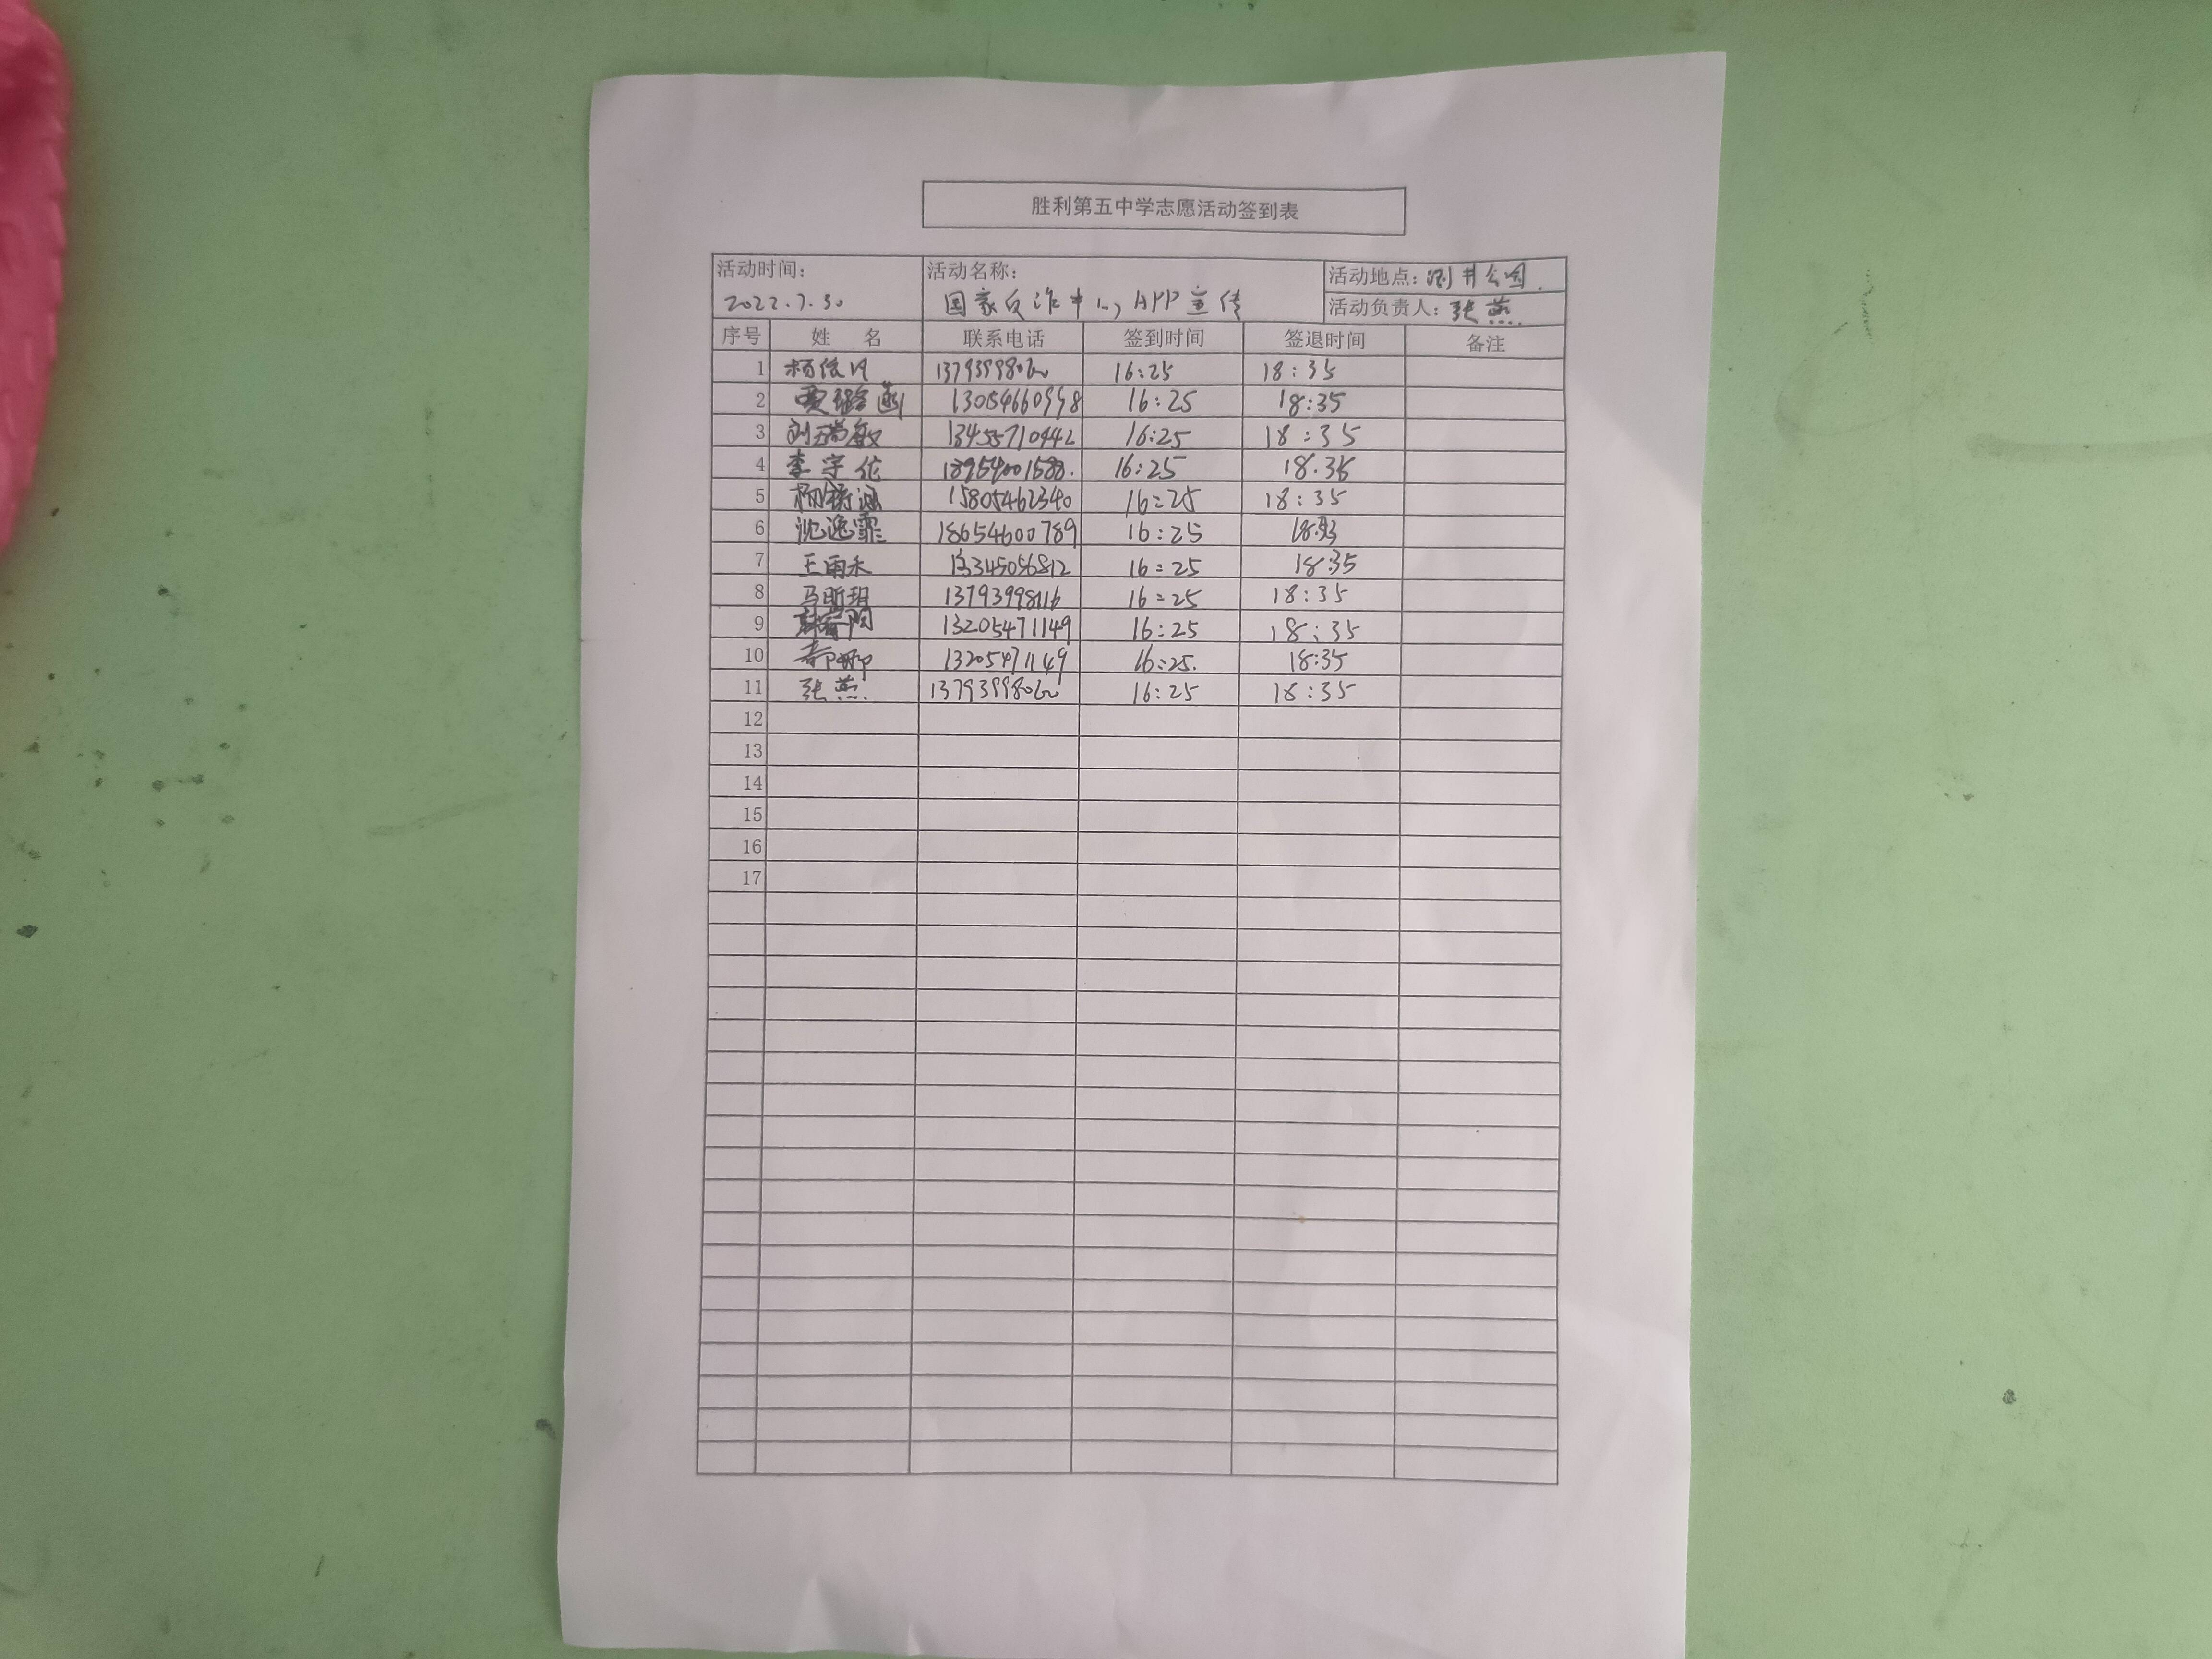 胜利第五中学志愿活动签到表
活动时间: 活动名称: 活动地点: 公园.
2022.7.30 国家反诈中心APP宣传 活动负责人: 张燕.
序号 姓 名 联系电话 签到时间 签退时间 备注
1 16:25 18:35
2 13054660998 16:25 18:35
3 刘瑞敏 13455710442 16:25 18:35
4 李宇伦 18954001588. 16:25 18.35
5 15805462340 16:25 18:35
6 沈逸霏 18654600789 16:25
7 王雨禾 13345056812 16:25 18:35
8 马昕玥 13793998116 16:25 18:35
9 13205471149 16:25 18:35
10 13205471149 16:25. 18:35
11 张燕. 16:25 18:35
12
13
14
15
16
17